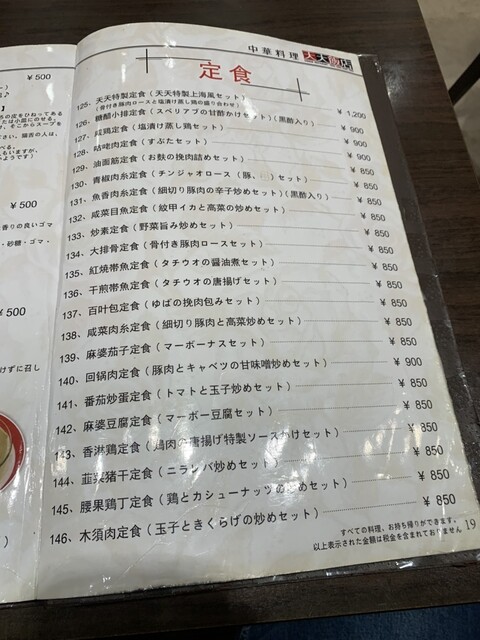 ¥ 500
香りの良いゴマ
・砂糖・ゴマ・
¥ 500
けずに召し
中華料理 天天飯店
定食
125、天天特製定食（天天特製上海風セット） ¥ 1,200
（骨付き豚肉ロースと塩漬け蒸し鶏の盛り合わせ）
126、糖醋小排定食（スペリアブの甘酢かけセット）（黒酢入り） ¥ 900
127、鹹鶏定食（塩漬け蒸し鶏セット） ¥ 900
128、咕咾肉定食（すぶたセット） ¥ 900
129、油面筋定食（お麩の挽肉詰めセット） ¥ 850
130、青椒肉糸定食（チンジャオロース（豚、 ）セット） ¥ 850
131、魚香肉糸定食（細切り豚肉の辛子炒めセット）（黒酢入り） ¥ 850
132、咸菜目魚定食（紋甲イカと高菜の炒めセット） ¥ 850
133、炒素定食（野菜旨み炒めセット） ¥ 850
134、大排骨定食（骨付き豚肉ロースセット） ¥ 850
135、紅焼帯魚定食（タチウオの醤油煮セット） ¥ 850
136、干煎帯魚定食（タチウオの唐揚げセット） ¥ 850
137、百叶包定食（ゆばの挽肉包みセット） ¥ 850
138、咸菜肉糸定食（細切り豚肉と高菜炒めセット） ¥ 850
139、麻婆茄子定食（マーボーナスセット） ¥ 850
140、回锅肉定食（豚肉とキャベツの甘味噌炒めセット） ¥ 900
141、番茄炒蛋定食（トマトと玉子炒めセット） ¥ 850
142、麻婆豆腐定食（マーボー豆腐セット） ¥ 850
143、香淋鶏定食（鶏肉の唐揚げ特製ソースかけセット） ¥ 850
144、韮菜猪干定食（ニラレバ炒めセット） ¥ 850
145、腰果鶏丁定食（鶏とカシューナッツの炒めセット） ¥ 850
146、木須肉定食（玉子ときくらげの炒めセット） ¥ 850
すべての料理、お持ち帰りができます。
以上表示された金額は税金を含まれておりません 19